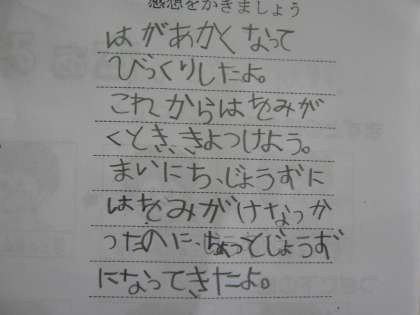 感想をかきましょう
はがあかくなって
びっくりしたよ。
これからはをみが
くとき、きよつけよう。
まいにち、じょうずに
はをみがけなっか
ったのに、ちょってじょうず
になってきたよ。